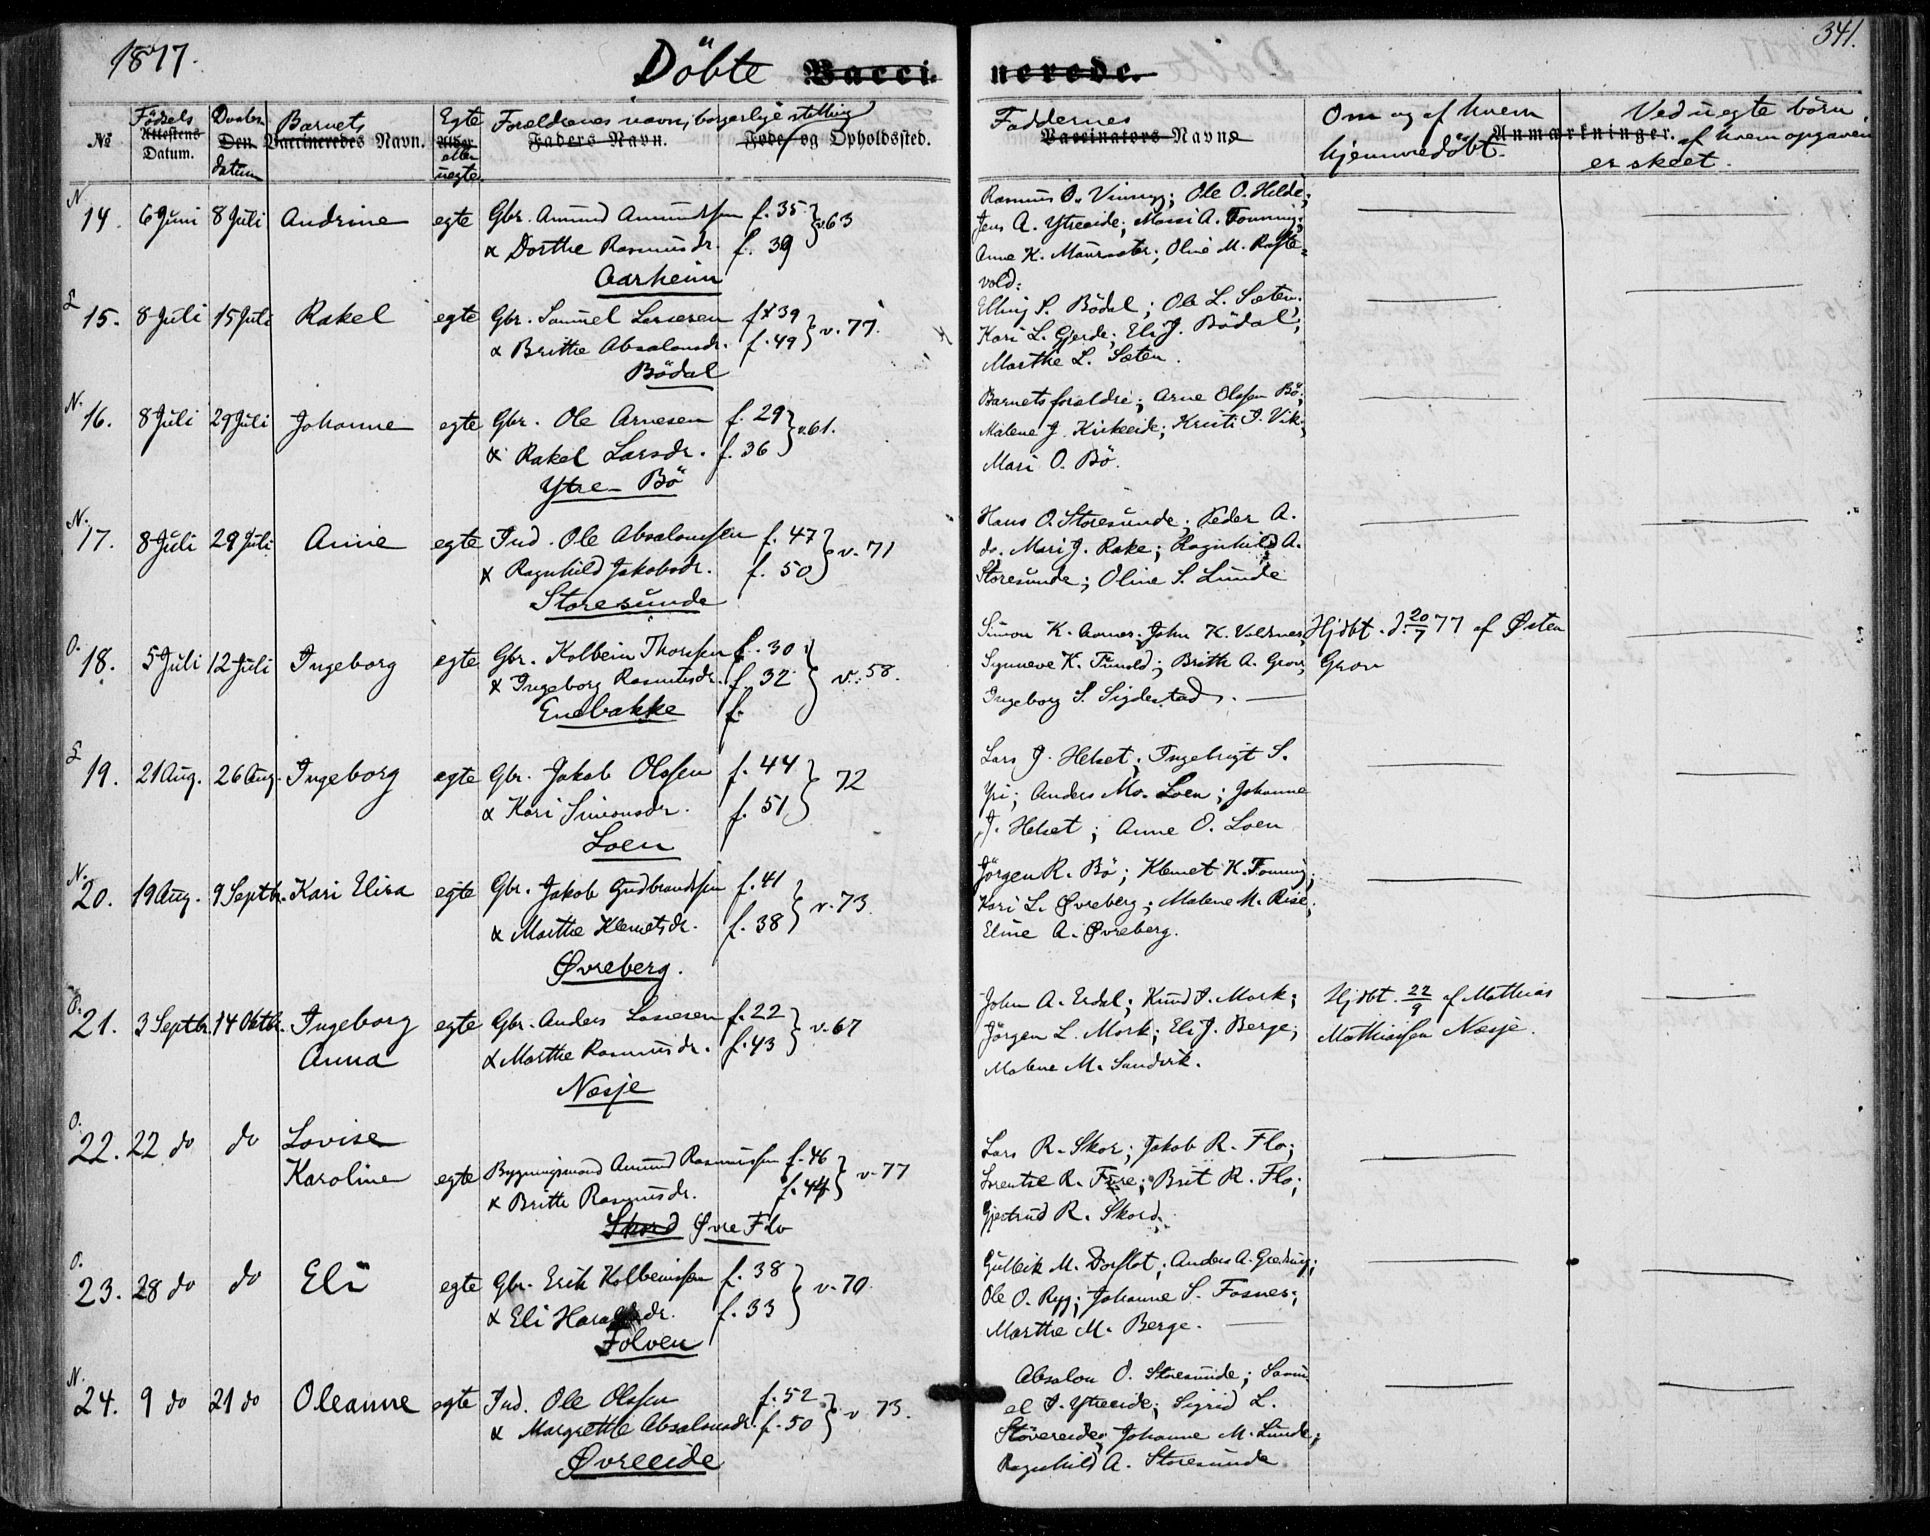 1877.
341.
Döbte Vaccinerede.
No
Födsels Attestens Datum.
Daabs Den datum
Barnets Vaccineredes Navn.
Egte Alder eller uegte.
Forældrenes navn, borgerlige stilling
Faders Navn. Føde og Opholdssted.
Faddernes
Vaccinators Navne
Om og af hvem
hjemmedöbt.
Anmærkninger.
Ved uegte börn,
af hvem opgaven
er skeet.
N
14. 6 Juni 8 Juli Andrine egte Gbr. Amund Amundsen f. 35 } v. 63
& Dorthe Rasmusdr. f. 39
Aarheim
Rasmus O. Vinsryg; Ole O. Helde;
Jens A. Ytreeide; Massi A. Tonning;
Anne K. Maursæter; Oline M. Rafte-
vold.
L
15. 8 Juli 15 Juli Rakel egte Gbr. Samuel Larsesen f. 39 } v. 77.
& Brithe Absalonsdr. f. 49
Bödal
Elling S. Bödal; Ole L. Sæten;
Kari L. Gjerde; Eli J. Bödal;
Marthe L. Sæten.
N.
16. 8 Juli 29 Juli Johanne egte Gbr. Ole Arnesen f. 29 } v. 61.
& Rakel Larsdr. f. 36
Ytre-Bö
Barnets forældre; Arne Olssen Bö;
Malene J. Kirkeeide; Kristi I. Vik;
Mari O. Bö.
N.
17. 8 Juli 29 Juli Anne egte Ind. Ole Absalonssen f. 47 } v. 71
& Ragnhild Jakobsdr. f. 50
Storesunde
Hans O. Storesunde; Peder A.
do. Mari J. Rake; Ragnhild A.
Storesunde; Oline S. Lunde
O.
18. 5 Juli 12 Juli Ingeborg egte Gbr. Kolbein Thorssen f. 30 } v. 58.
& Ingeborg Rasmusdr. f. 32
Enebakke f.
Simon K. Avnes. John K. Vollsnes,
Synneve K. Tunold; Brithe A. Grov,
Ingeborg S. Sigdestad.
Hjdbt. d. 20/7 77 af Østen
Grov
L
19. 21 Aug. 26 Aug. Ingeborg egte Gbr. Jakob Olssen f. 44 } 72
& Kari Simonsdr. f. 51
Loen
Lars J. Helset; Ingebrigt S.
Yri; Anders Mo. Loen; Johanne
J. Helset; Anne O. Loen
N.
20. 19 Aug. 9 Septbr. Kari Elisa egte Gbr. Jakob Gudbrandssen f. 41 } v. 73.
& Marthe Klemetsdr. f. 38
Øvreberg.
Jörgen R. Bö; Klemet K. Tonning;
Kari L. Øvreberg; Malene M. Rise;
Eline A. Øvreberg.
O.
21. 3 Septbr. 14 Oktbr. Ingeborg egte Gbr. Anders Lassesen f. 22 } v. 67
Anna & Marthe Rasmusdr. f. 43
Nesje
John A. Erdal; Knud I. Mork;
Jörgen L. Mork; Eli J. Berge;
Malene M. Sandvik.
Hjdbt. 22/9 af Mathias
Mathiassen Nesje.
O.
22. 22 do do Lovise
Karoline egte Bygningsmand Amund Rasmussen f. 46 } v. 77
& Brithe Rasmusdr. f. 44
Skord Øvre Flo
Lars R. Skor; Jakob R. Flo;
Lorentse R. Fure; Brit R. Flo;
Gjertrud R. Skord.
O.
23. 28 do do Eli egte Gbr. Erik Kolbeinssen f. 38 } v. 70.
& Eli Haraldsdr. f. 33
Folven
Gulleik M. Dorflot; Anders A. Greding;
Ole O. Ryg; Johanne S. Fosnes;
Marthe M. Berge.
N.
24. 9 do 21 do Oleanne egte Ind. Ole Olssen f. 52 } v. 73.
& Margrethe Absalonsdr. f. 50
Øvreeide
Absalon O. Storesunde; Samu-
el I. Ytreeide; Sigrid L.
Stövereide; Johanne M. Lunde;
Ragnhild A. Storesunde